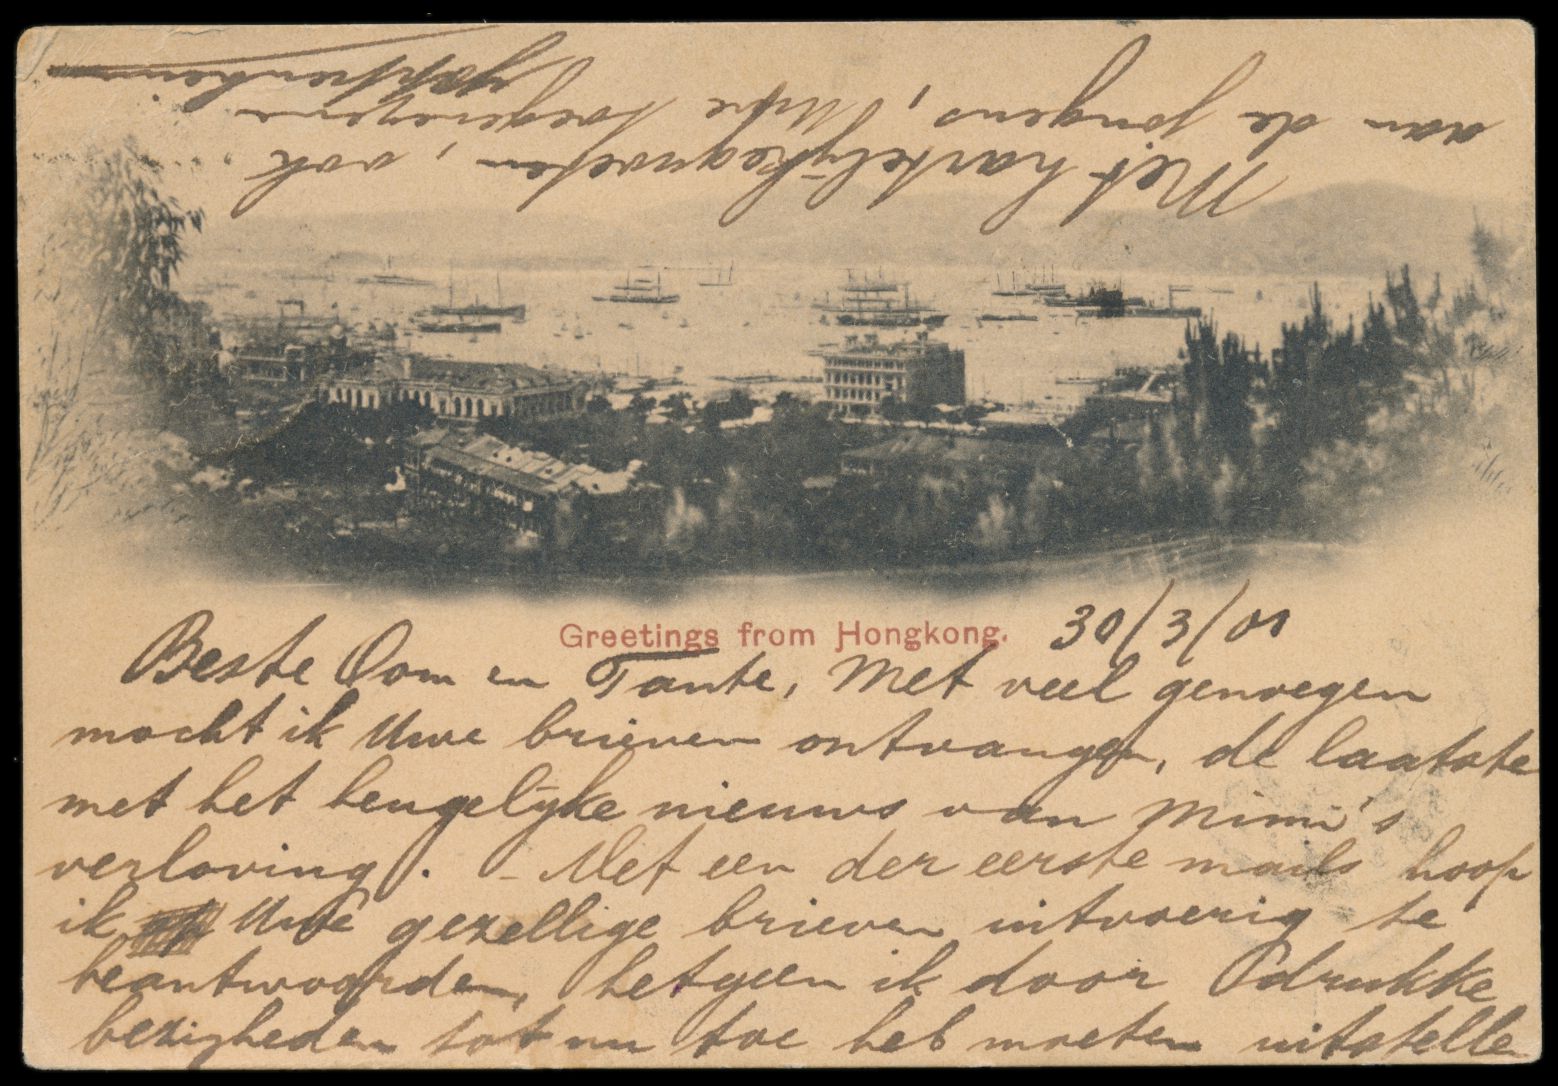 Greetings from Hongkong.
30/3/01
Beste Oom en Tante, Met veel genoegen
mocht ik Uwe brieven ontvangen, de laatste
met het heugelijke nieuws van Mimi's
verloving. - Met een der eerste mails hoop
ik Uwe gezellige brieven uitvoerig te
beantwoorden, hetgeen ik door drukke
bezigheden tot nu toe heb moeten uitstellen
Met hartelijke groeten, ook
aan de jongens, Uwe toegenegene